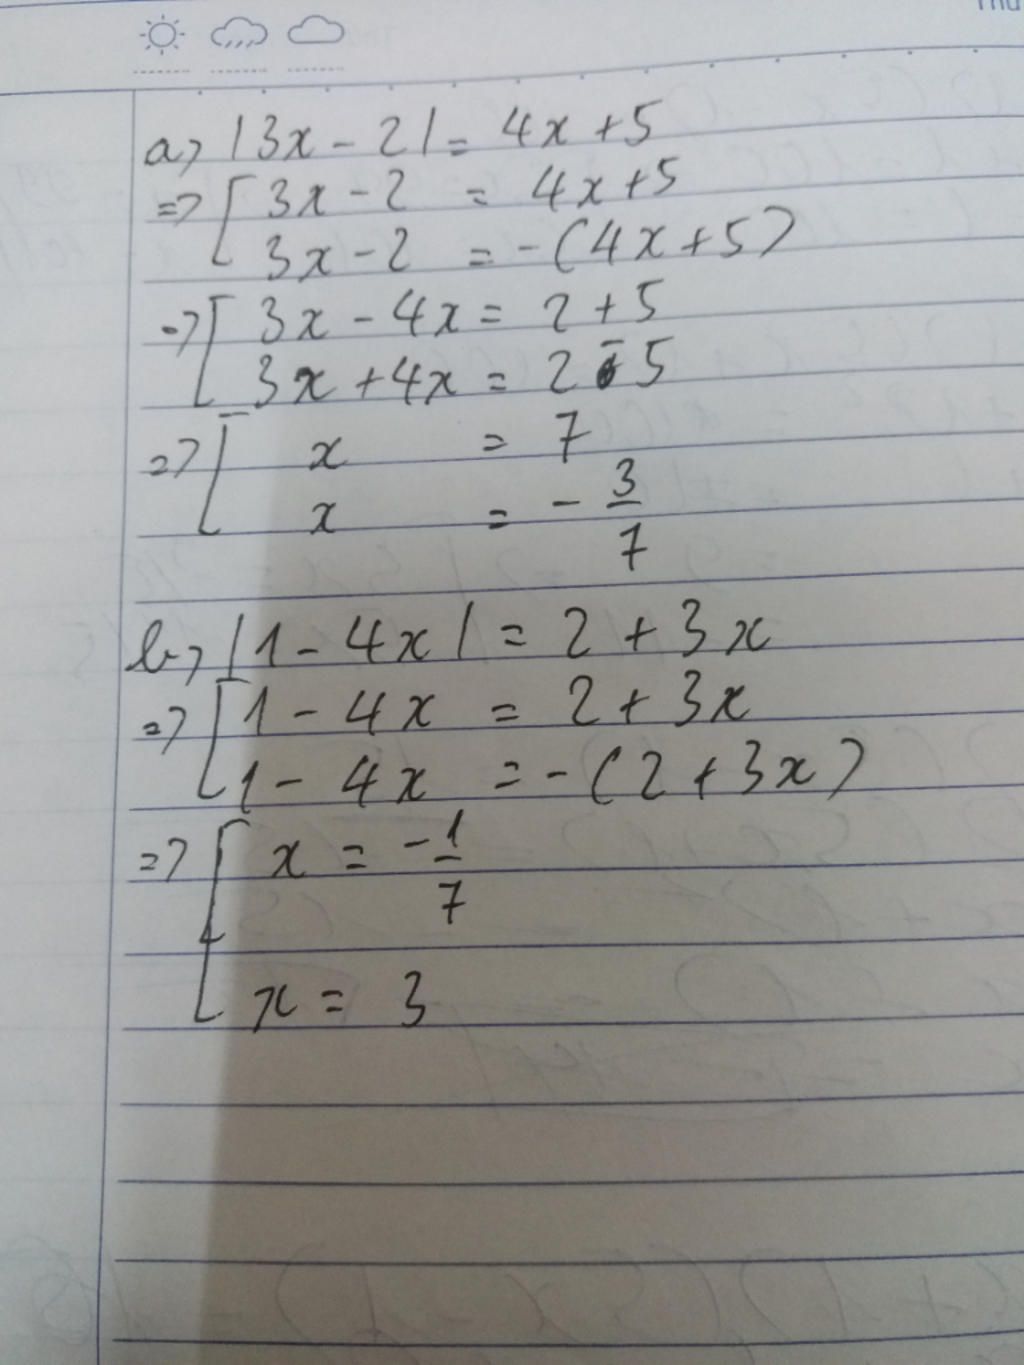 Thu
a, |3x - 2| = 4x + 5
=> [ 3x - 2 = 4x + 5
3x - 2 = -(4x + 5)
=> [ 3x - 4x = 2 + 5
3x + 4x = 2 - 5
=> [ x = 7
x = - 3/7
b, |1 - 4x| = 2 + 3x
=> [ 1 - 4x = 2 + 3x
1 - 4x = -(2 + 3x)
=> [ x = -1/7
x = 3